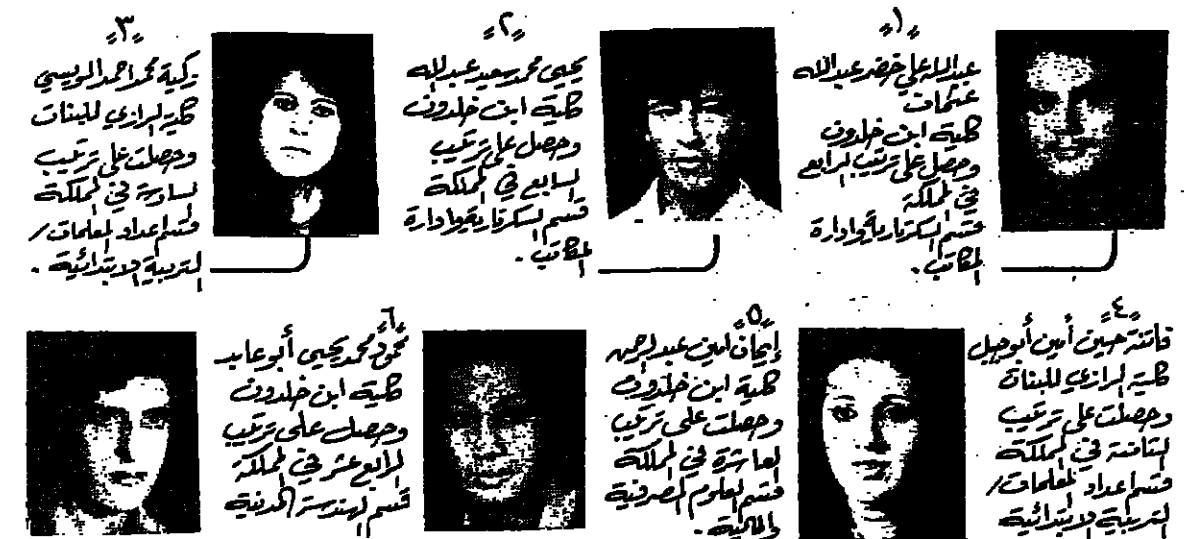 "١"
عبدالله علي خضر عبدالله
عتمات
كلية ابن خلدون
وحصل على ترتيب الرابع
في المملكة
قسم السكرتارية وادارة
المكاتب.
"٢"
يحيى محمد سعيد عبدالله
كلية ابن خلدون
وحصل على ترتيب
السابع في المملكة
قسم السكرتارية وادارة
المكاتب.
"٣"
زكية محمد احمد الويسي
كلية الرازي للبنات
وحصلت على ترتيب
السادسة في المملكة
قسم اعداد المعلمات/
التربية الابتدائية.
"٤"
فاتنة حسين أمين أبو جبل
كلية الرازي للبنات
وحصلت على ترتيب
الثامنة في المملكة
قسم اعداد المعلمات/
التربية الابتدائية
"٥"
إيمان أمين عبدالرحمن
كلية ابن خلدون
وحصلت على ترتيب
العاشرة في المملكة
قسم العلوم المصرفية
والمالية.
"٦"
محمود محمد يحيى أبو عابد
كلية ابن خلدون
وحصل على ترتيب
الرابع عشر في المملكة
قسم الهندسة المدنية